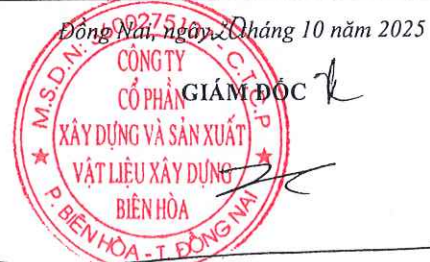 Đồng Nai, ngày 20 tháng 10 năm 2025
GIÁM ĐỐC
M.S.D.N: - C.T.C.P
CÔNG TY
CỔ PHẦN
XÂY DỰNG VÀ SẢN XUẤT
VẬT LIỆU XÂY DỰNG
BIÊN HÒA
P. BIÊN HÒA - T. ĐỒNG NAI